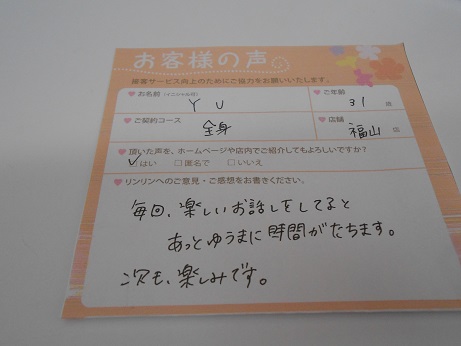 お客様の声
接客サービス向上のためにご協力をお願いいたします。
♥お名前（イニシャル可） Y U ♥ご年齢 31 歳
♥ご契約コース 全身 ♥店舗 福山 店
♥頂いた声を、ホームページや店内でご紹介してもよろしいですか？
☑はい □匿名で □いいえ
♥リンリンへのご意見・ご感想をお書きください。
毎回、楽しいお話しをしてると
あっとゆうまに時間がたちます。
次も、楽しみです。